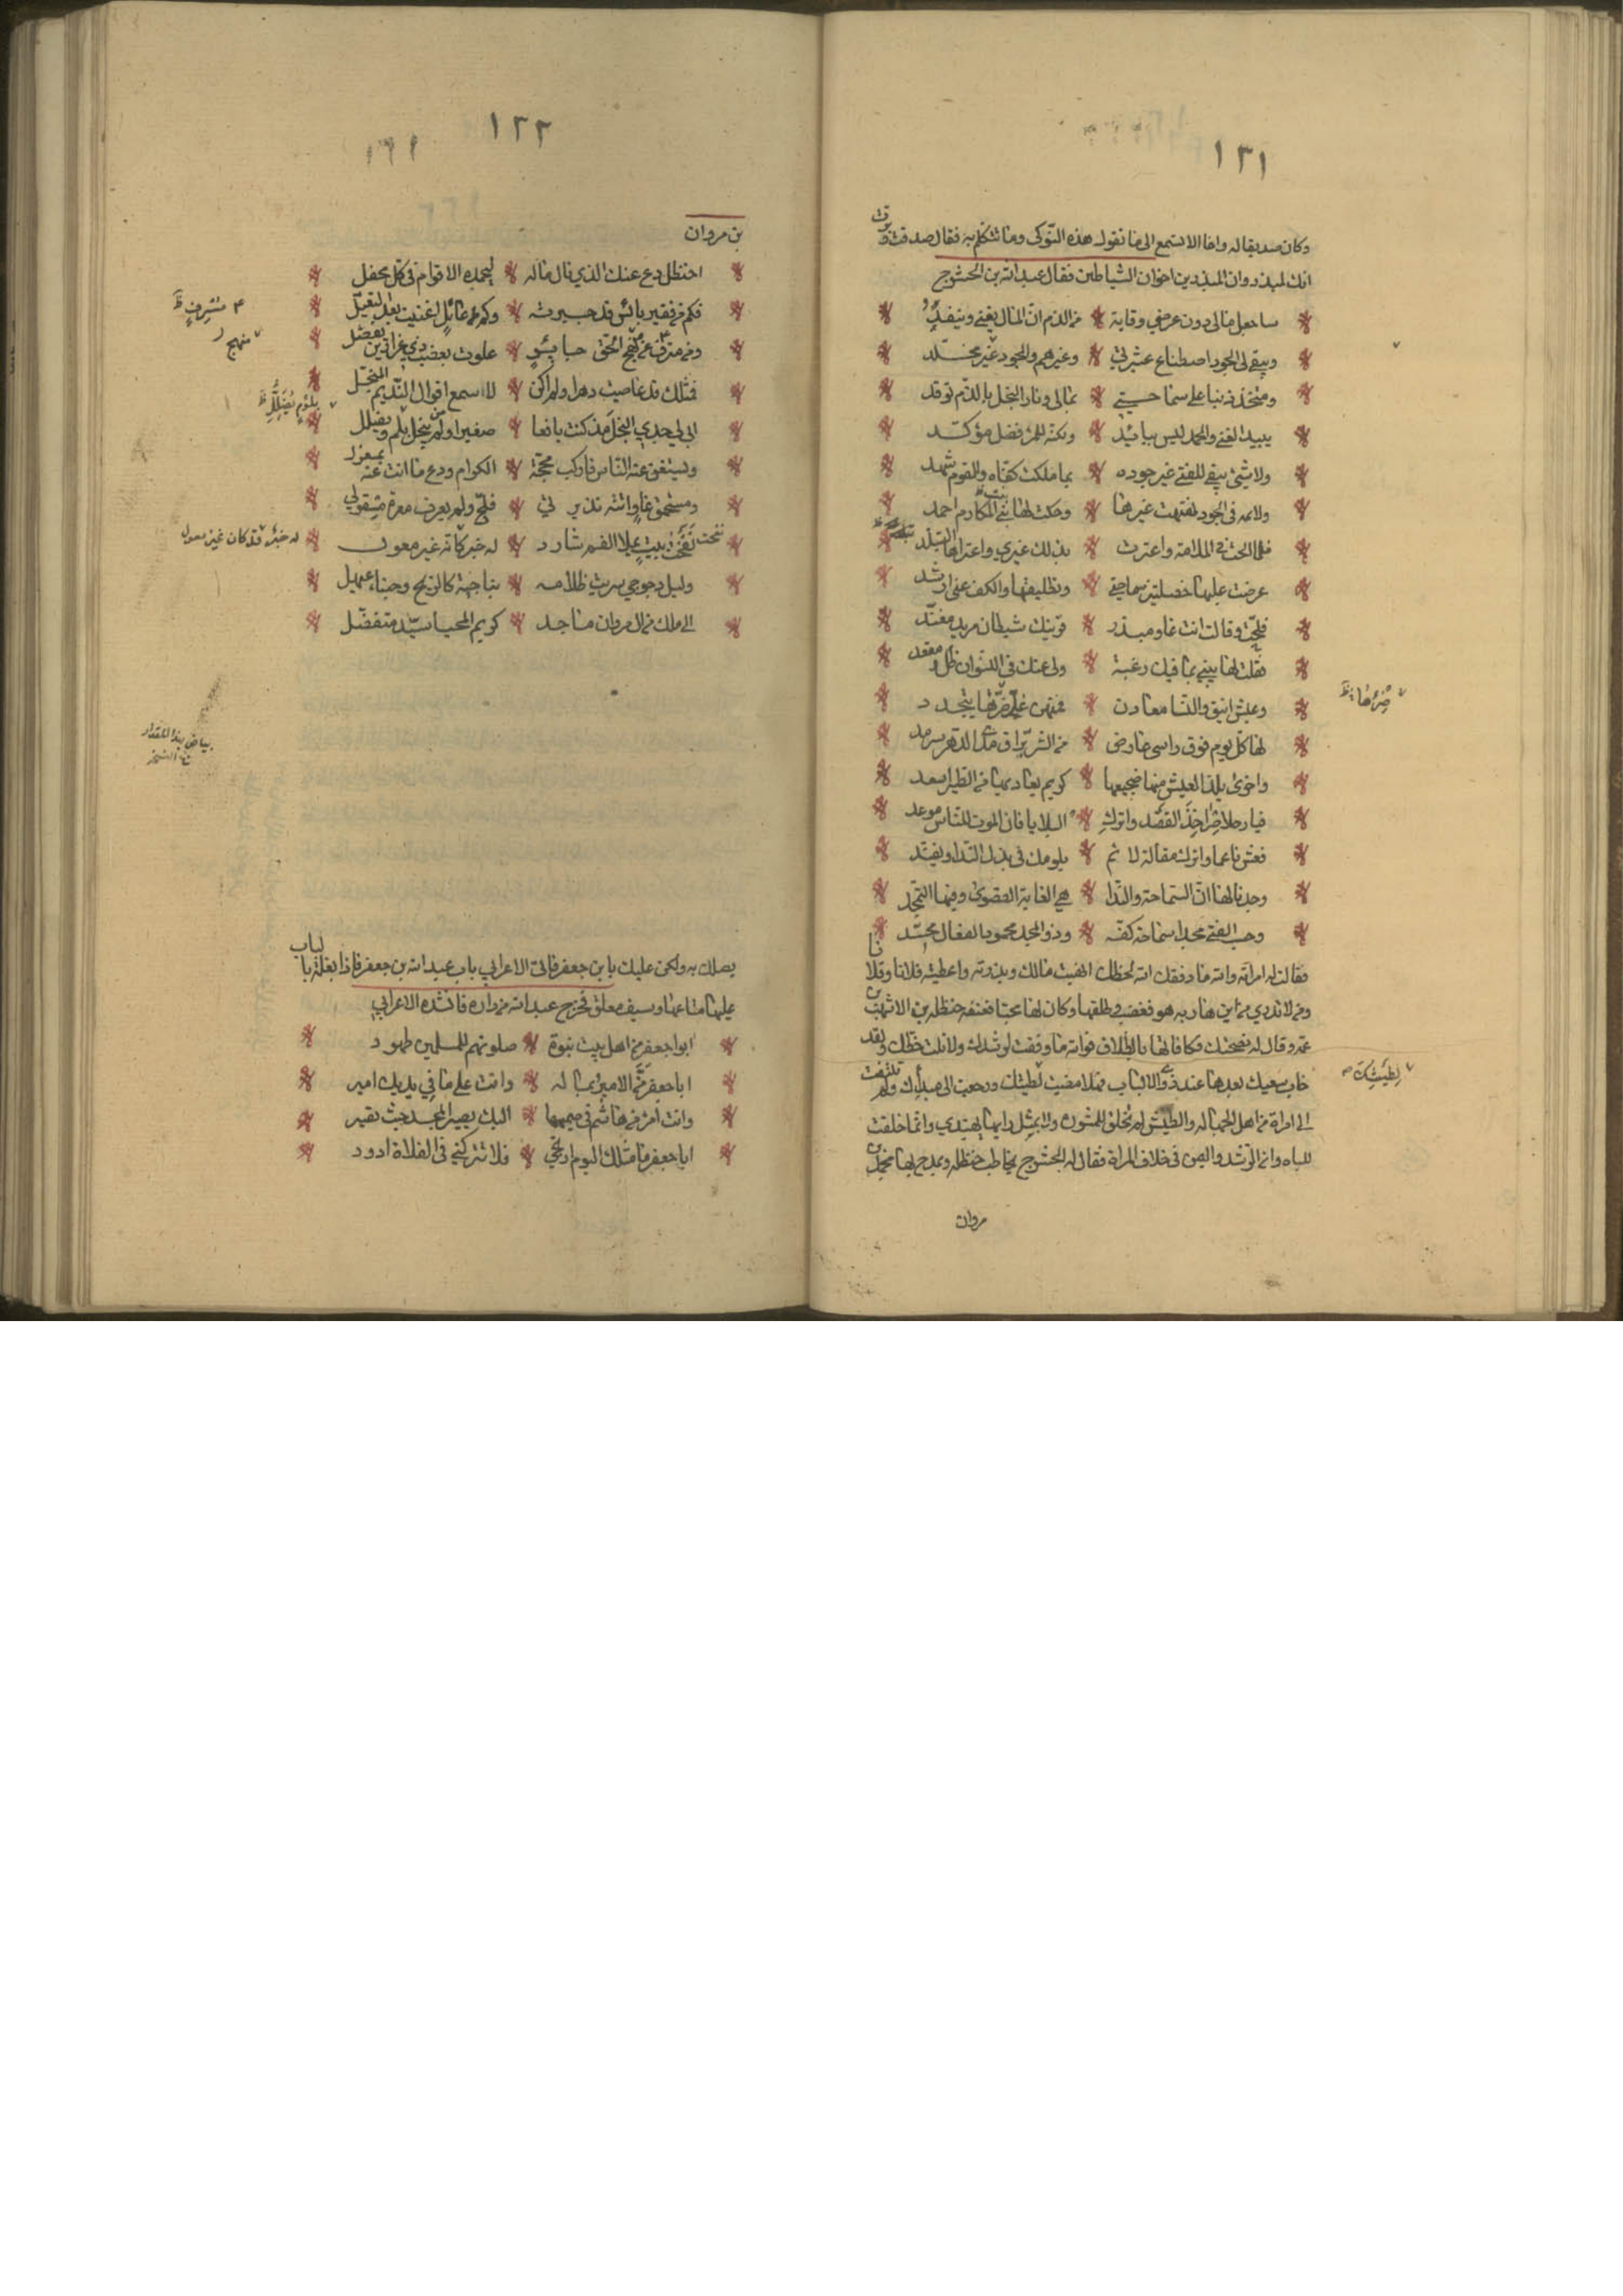 ١٢١
وكان صديقا له واخا الا تستمع الى ما تقوله هذه النوكى وما تتكلم به فقال صدقت وبرت
انك لمبذر وان المبذرين اخوان الشياطين فقال عبد الله بن الحشرج
ساجعل مالى دون عرضي وقاية من الذم ان المال يفنى وينفد
ويبقى لى الجود اصطناع عشيرتي وغيرهم والجود غير مخلد
ومتخذ ذنبا على سماحتي بمالى ونار البخل بالذم توقد
يبيد الغنى والحمد ليس ببائد ولكنه للمرء فضل مؤكد
ولا شئ يبقى للفتى غير جوده بما ملكت كفاه والقوم شهد
ولائمة فى الجود نهنهت غيرها وقلت لها بنى المكارم احمد
فلما الحت فى الملامة واعترت بذلك غيرى واعتراها التبلد
عرضت عليها خصلتين سماحتى وتطليقها والكف عنى ارشد
فلجت وقالت انت غاو مبذر قرينك شيطان مريد مفند
فقلت لها بينى بما فيك رغبة ولى عنك فى النسوان ظل ومقعد
وعيش انيق والنسا معادن فمنهن غل شرها يتجدد
لها كل يوم فوق راسى عارض من الشر براق مدى الدهر سرمد
واخرى يلذ العيش منها ضجيعها كريم يغاديها من الطير اسعد
فيا رجلا حرا خذ القصد واترك البلايا فان الموت للناس موعد
فعش ناعما واترك مقالة لائم يلومك فى بذل الندا ويفند
وجد بالها ان السماحة والندا هى الغاية القصوى وفيها التمجد
وحسب الفتى مجدا سماحة كفه وذو المجد محمود الفعال محسد
فقالت له امراته والله ما وفقك الله لحظك انهبت مالك وبذرته واعطيته فلانا وفلانا
ومن لا تدري من اين هاربه هو فغضب وطلقها وكان لها محبا فعنفه حنظلة بن الاشهب بن
عمه وقال له نصحتك فكافاتها بالطلاق فوالله ما وفقت لرشدك ولا نلت حظك ولقد
خاب سعيك بعدها عند ذوى الالباب فهلا مضيت لطيتك ورجعت الى ميدانك ولم تلتفت
الى امراة من اهل الجهالة والطيش لم تخلق للمشورة ولا بمثل رايها يهتدي وانما خلقت
للباه وانما الرشد واليمن فى خلاف المراة فقال له الحشرج يخاطب حنظله ويمدح بها محمد بن
ضرها
لطيتك
مروان
١٢٢
بن مروان
احنظل دع عنك الذي نال ماله ليحمده الاقوام فى كل محفل
فكم من فقير بائس قد جبرته وكم من عائل اغنيت بعد التعيل
ومن مترف عن منهج الحق جائر علوت بعضب ذي غرارين مفصل
فمثلك قد عاصيت دهرا ولم اكن لاسمع اقوال اللئيم المبخل
ابى لى جدي البخل مذ كنت يافعا صغيرا ومن يبخل يلم ويضلل
ويستغن عنه الناس فاركب محجة الكرام ودع ما انت عنه بمعزل
ومستحمق غاو اتته نذيرتي فلج ولم يعرف معرة مقولي
نفخت ببيت يملا الفم شارد له خبر كانه غير معول
وليل دجوجي سريت ظلامه بناجية كالريح وجناء عيهل
الى ملك من ال مروان ماجد كريم المحيا سيد متفضل
مسرف
منهج
يلوم يضلل
له خبر قد كان غير معول
بياض بهذا المقدار
يصلك به ولكن عليك بابن جعفر فاتى الاعرابي باب عبد الله بن جعفر فاذا بغلة بالباب
عليها متاعها وسيف معلق فخرج عبد الله من داره فانشده الاعرابي
ابوا جعفر من اهل بيت نبوة صلوتهم للمسلمين طهور
ابا جعفر ضن الامير بماله وانت على ما فى يديك امير
وانت امرؤ من هاشم فى صميمها اليك يصير المجد حيث تصير
ابا جعفر ما مثلك اليوم ارتجي فلا تتركنى فى الفلاة ادور